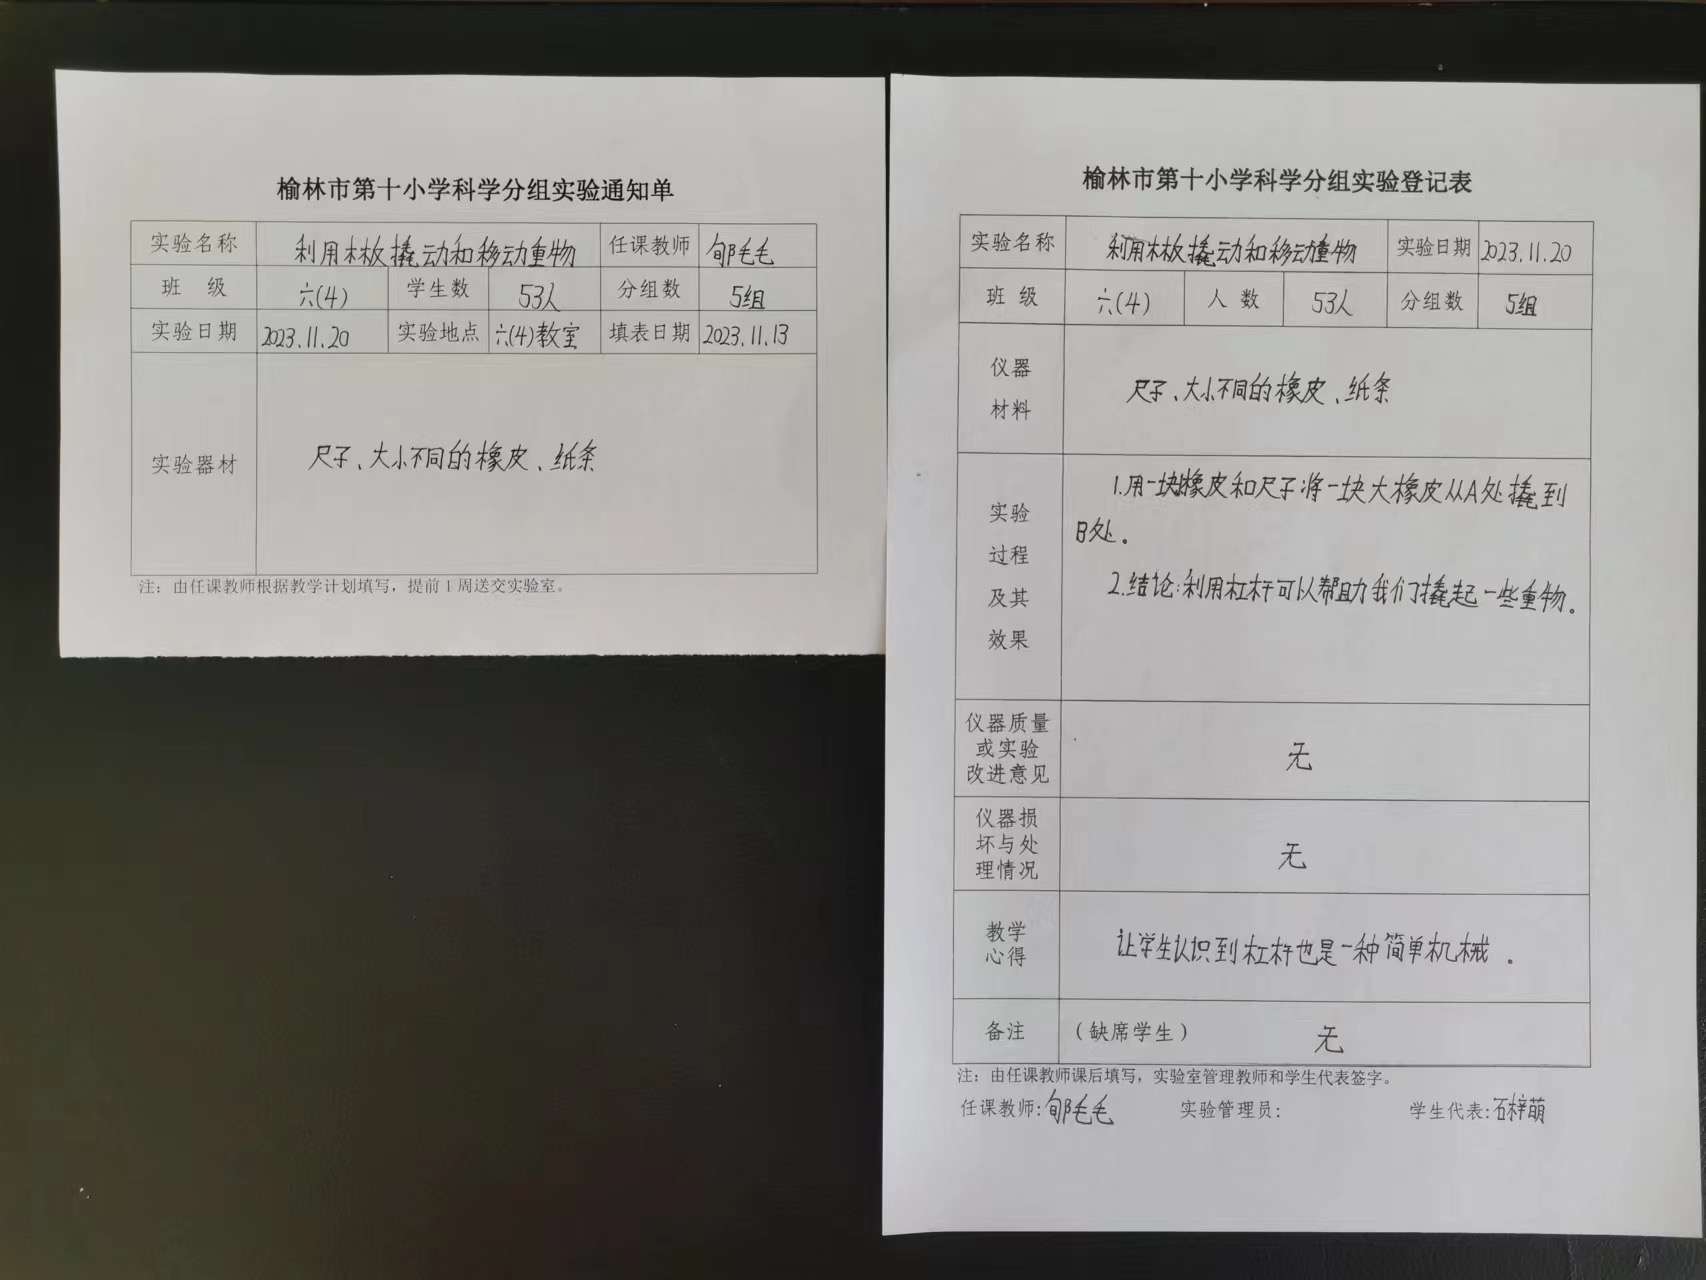 榆林市第十小学科学分组实验通知单
实验名称 利用木板撬动和移动重物 任课教师 郇毛毛
班 级 六(4) 学生数 53人 分组数 5组
实验日期 2023.11.20 实验地点 六(4)教室 填表日期 2023.11.13
实验器材 尺子、大小不同的橡皮、纸条
注：由任课教师根据教学计划填写，提前1周送交实验室。
榆林市第十小学科学分组实验登记表
实验名称 利用木板撬动和移动重物 实验日期 2023.11.20
班 级 六(4) 人 数 53人 分组数 5组
仪器
材料
尺子、大小不同的橡皮、纸条
实验
过程
及其
效果
1.用一块橡皮和尺子将一块大橡皮从A处撬到
B处。
2.结论:利用杠杆可以帮助我们撬起一些重物。
仪器质量
或实验
改进意见
无
仪器损
坏与处
理情况
无
教学
心得
让学生认识到杠杆也是一种简单机械。
备注 （缺席学生） 无
注：由任课教师课后填写，实验室管理教师和学生代表签字。
任课教师:郇毛毛 实验管理员: 学生代表:石梓萌